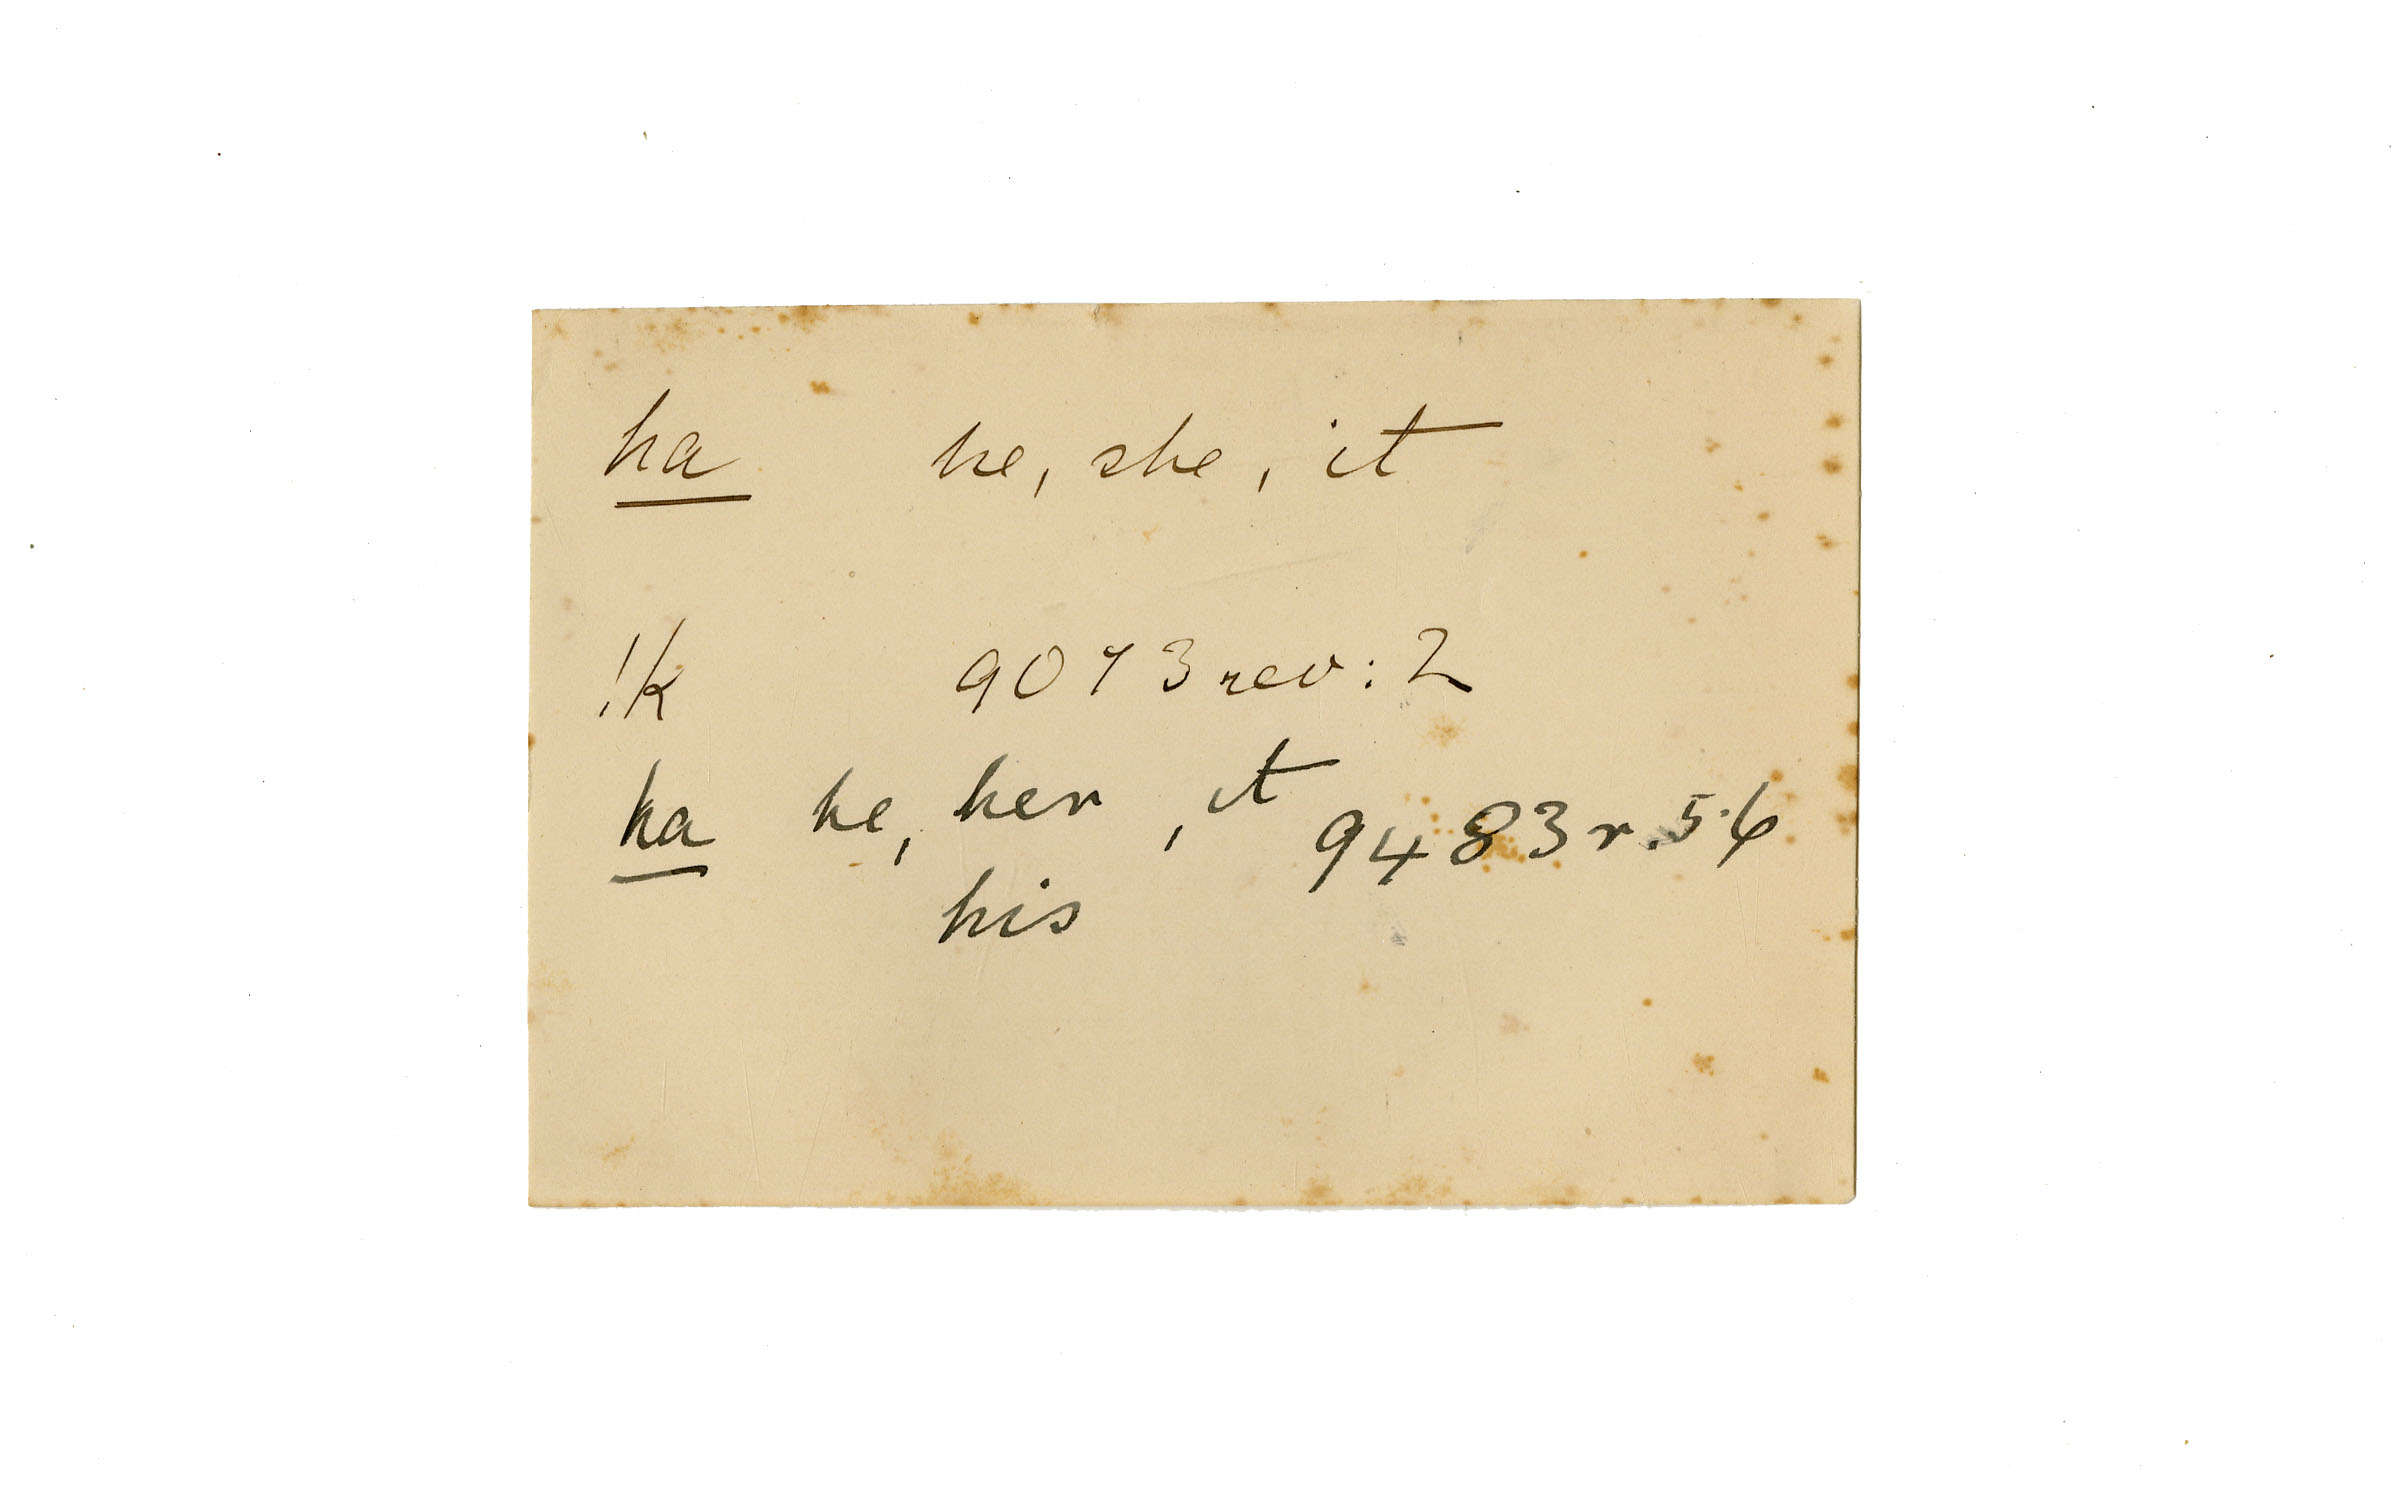 ha he, she, it
!k 9073 rev: 2
ha he, her, it 9483 r. 5.6
his